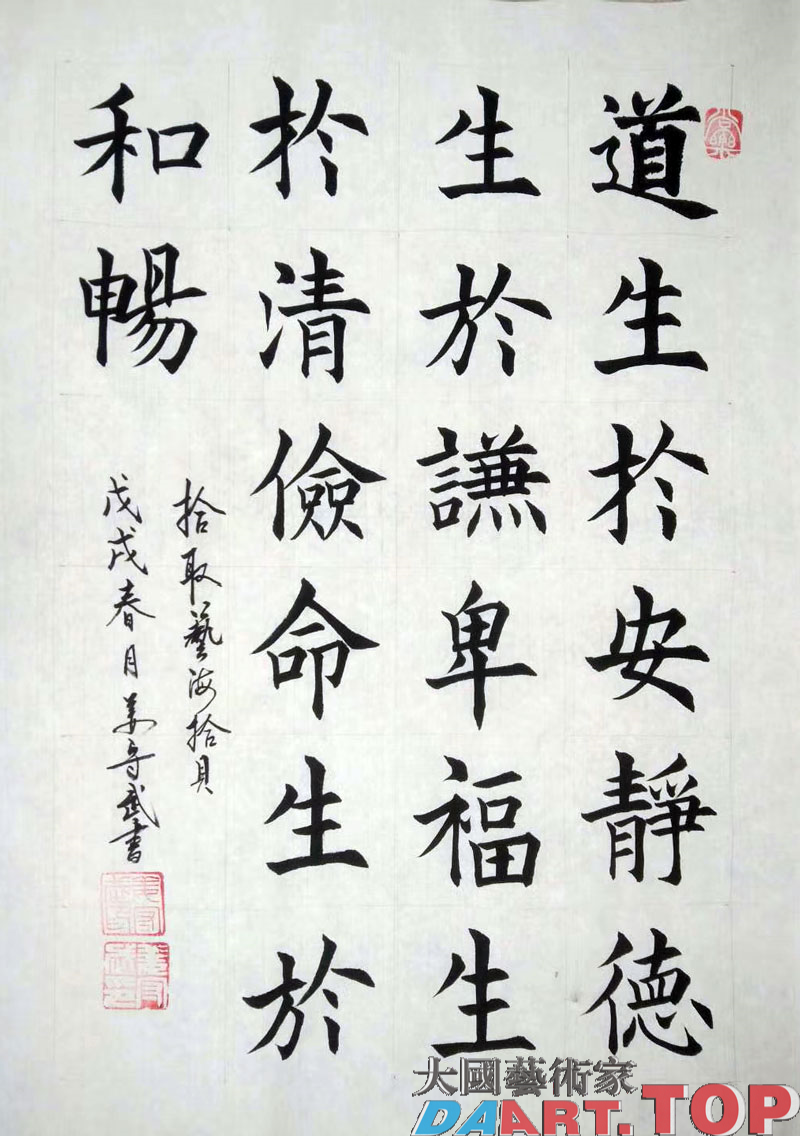 道生於安靜德
生於謙卑福生
於清儉命生於
和暢
拾取藝海拾貝
戊戌春月姜守武書
大國藝術家
DAART.TOP